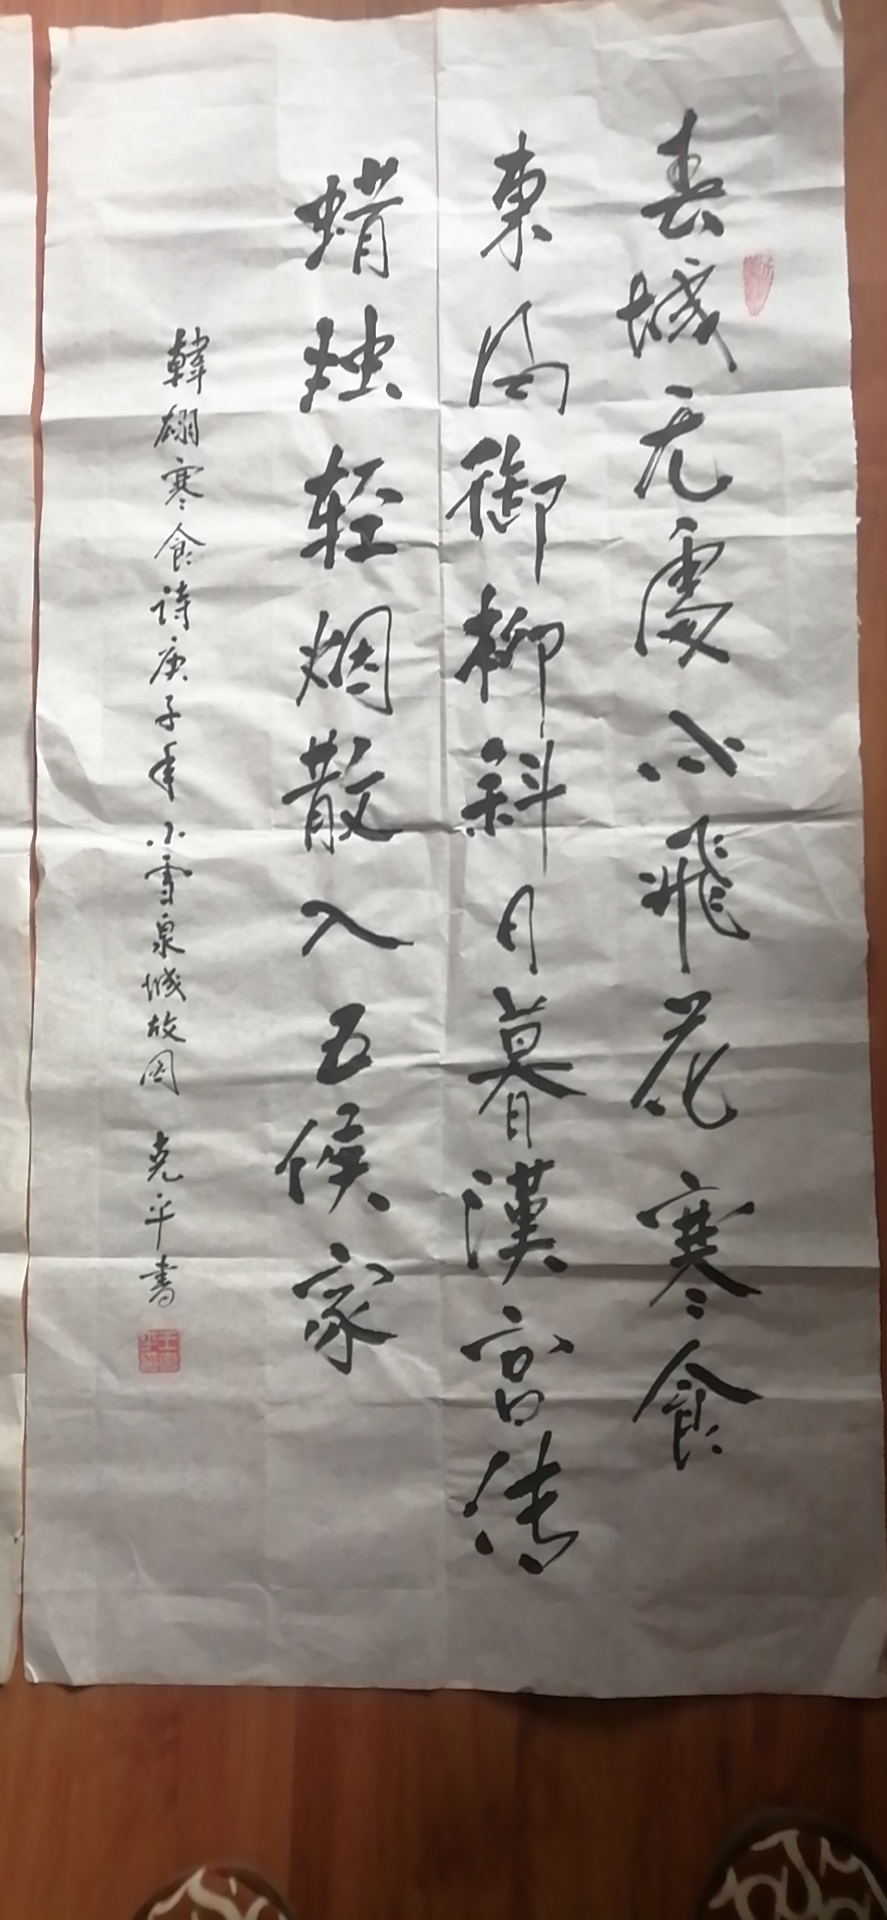 春城无處不飛花寒食
東風御柳斜日暮漢宮传
蜡烛轻烟散入五侯家
韓翃寒食诗庚子年小雪泉城故园 克平書